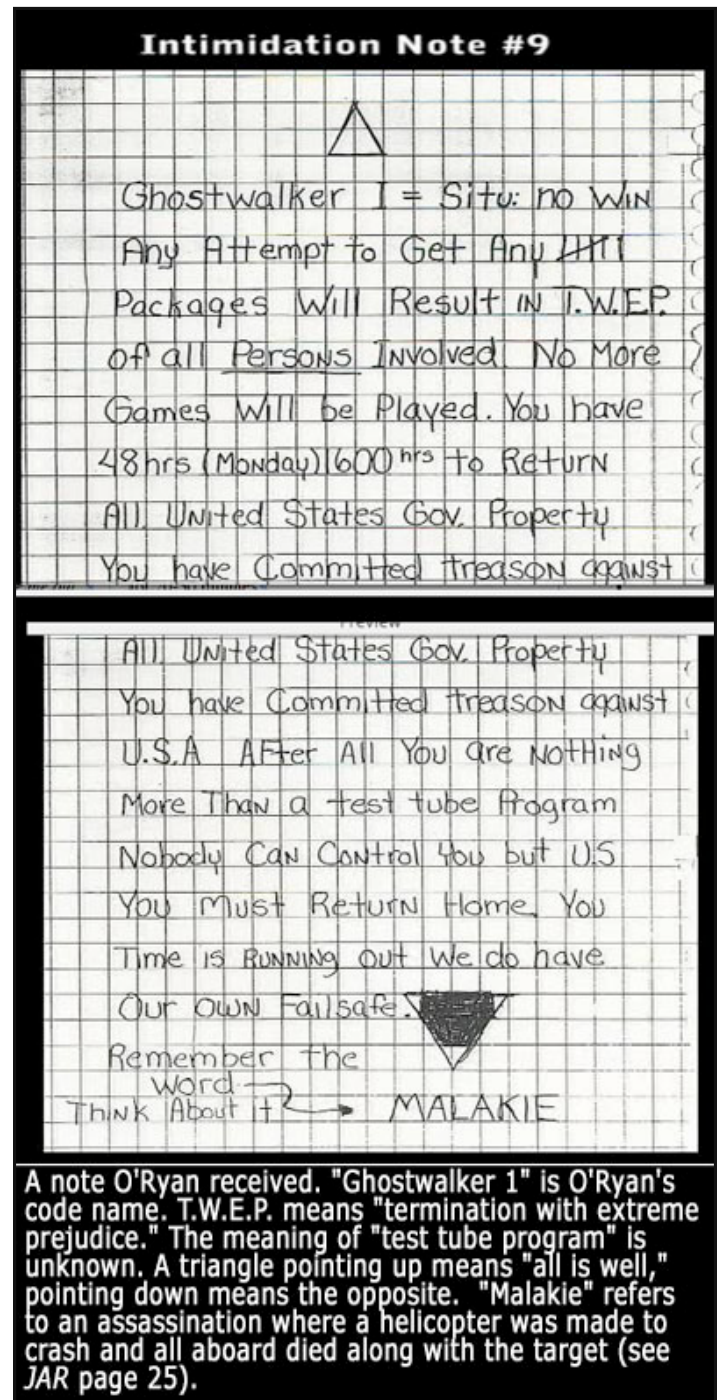 Intimidation Note #9
Ghostwalker I = Situ: no WIN
Any Attempt to Get Any
Packages Will Result IN T.W.E.P.
of all Persons Involved. No More
Games Will be Played. You have
48hrs (Monday) 1600 hrs to Return
All United States Gov. Property
You have Committed treason against
Preview
All United States Gov. Property
You have Committed treason against
U.S.A After All You are NotHing
More Than a test tube Program
Nobody CaN CoNtrol You but U.S
You Must Return Home. You
Time is RUNNiNg out We do have
Our OWN Failsafe.
Remember the
Word
ThiNk About it MALAKIE
A note O'Ryan received. "Ghostwalker 1" is O'Ryan's
code name. T.W.E.P. means "termination with extreme
prejudice." The meaning of "test tube program" is
unknown. A triangle pointing up means "all is well,"
pointing down means the opposite. "Malakie" refers
to an assassination where a helicopter was made to
crash and all aboard died along with the target (see
JAR page 25).